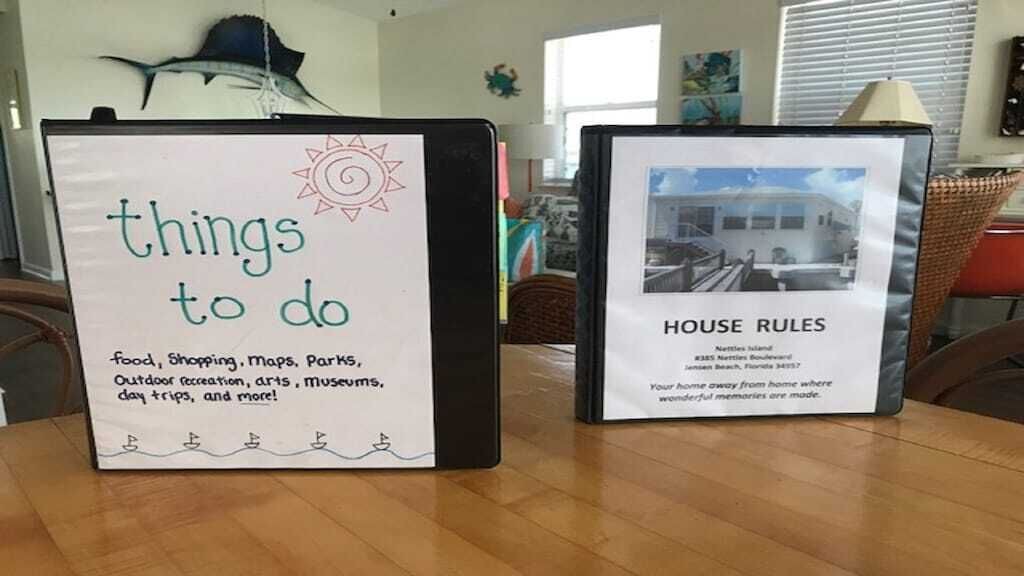 things
to do
food, Shopping, maps, Parks,
Outdoor recreation, arts, museums,
day trips, and more!
HOUSE RULES
Nettles Island
#385 Nettles Boulevard
Jensen Beach, Florida 34957
Your home away from home where
wonderful memories are made.